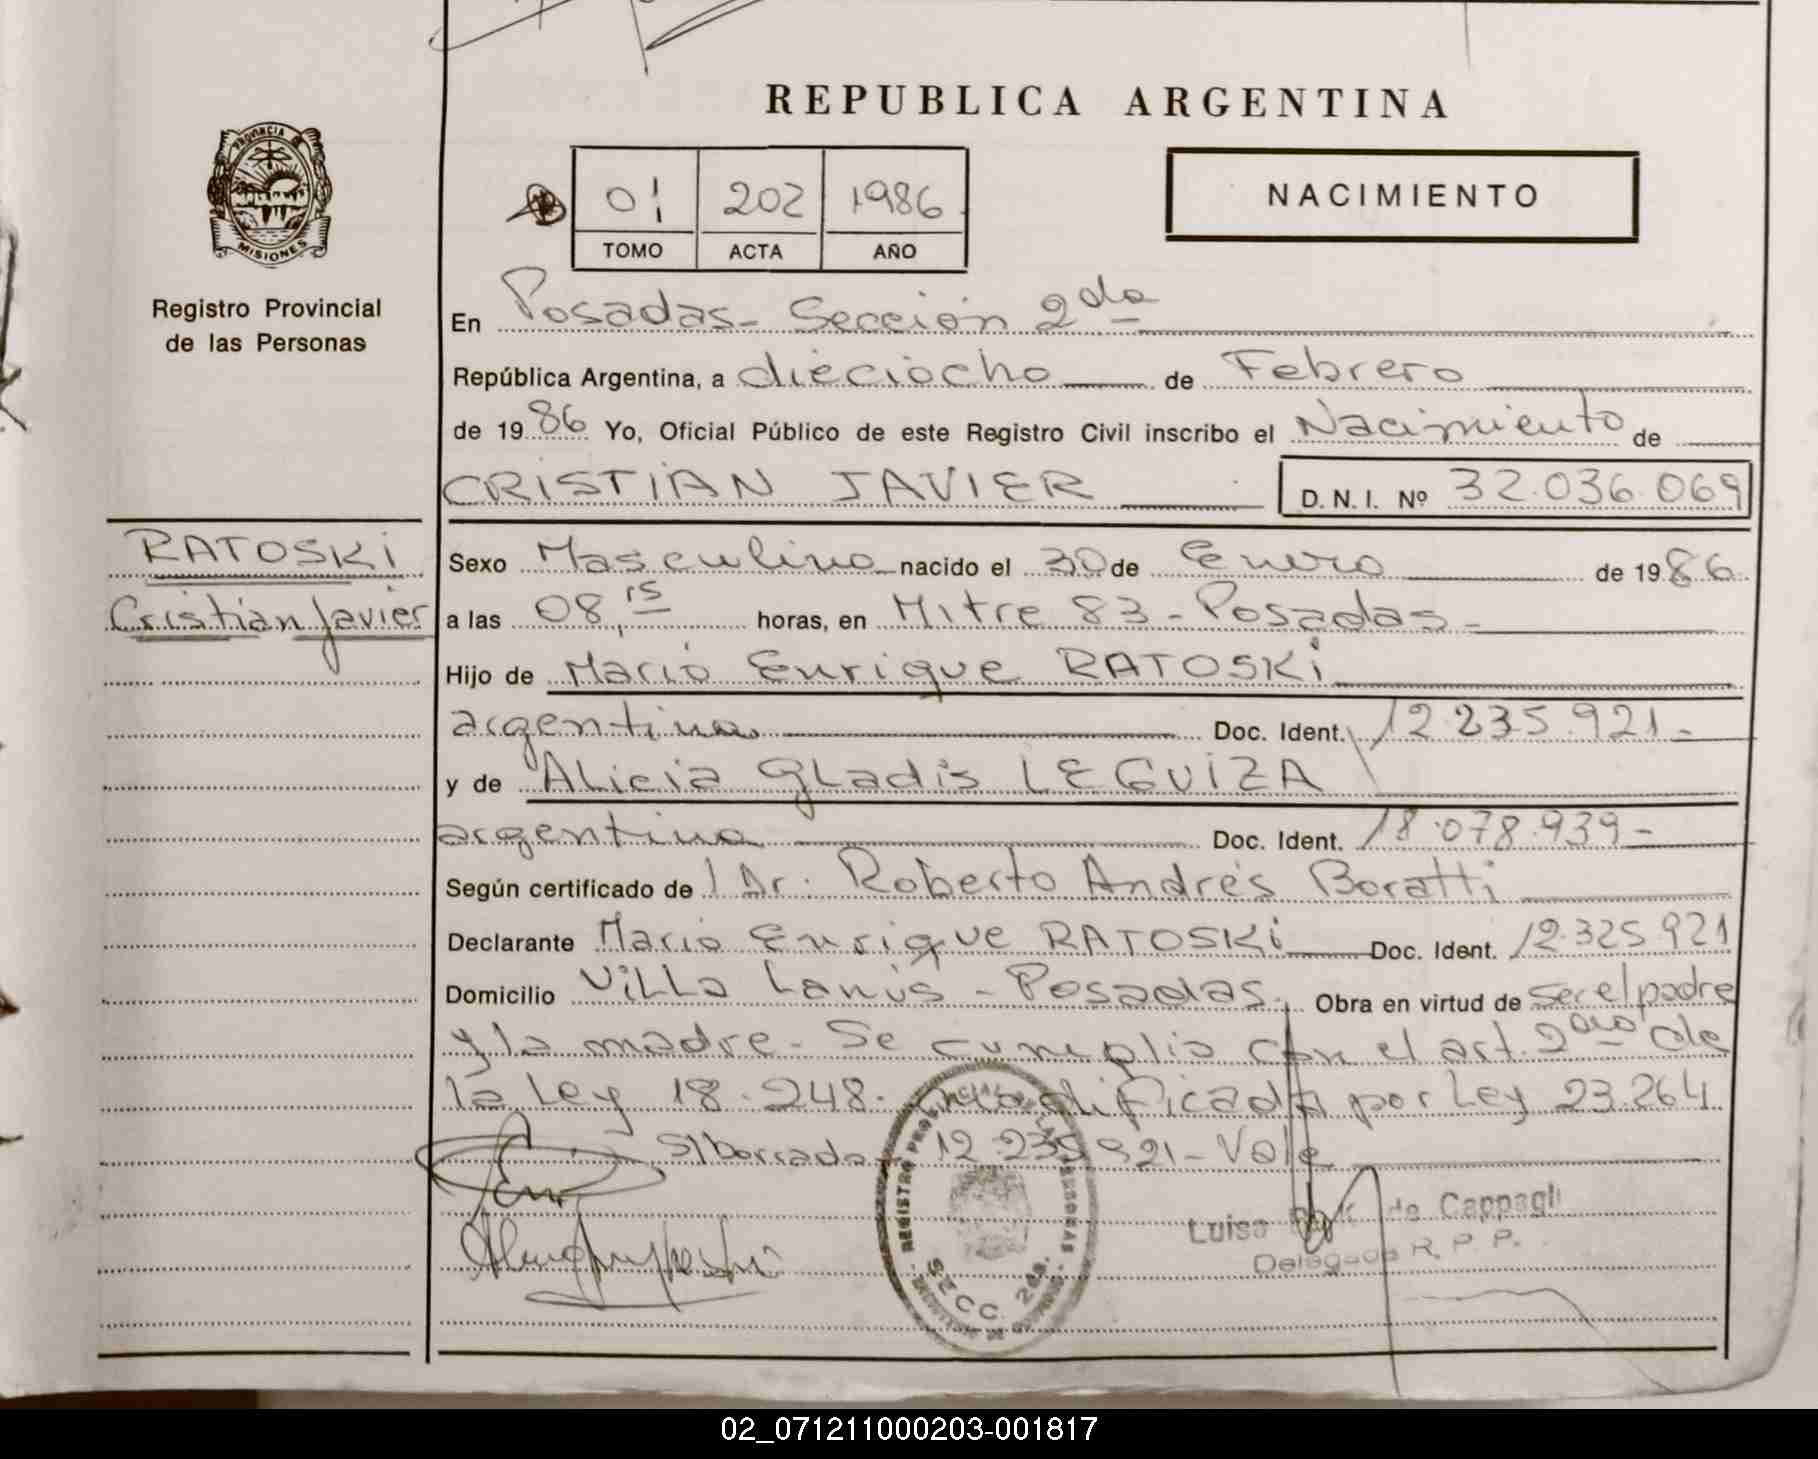 REPUBLICA ARGENTINA
PROVINCIA DE
MISIONES
Registro Provincial
de las Personas
01 202 1986
TOMO ACTA AÑO
NACIMIENTO
En Posadas - Sección 2da
República Argentina, a dieciocho de Febrero
de 1986 Yo, Oficial Público de este Registro Civil inscribo el Nacimiento de
CRISTIAN JAVIER D. N. I. Nº 32.036.069
RATOSKI
Cristian Javier
Sexo Masculino nacido el 30 de Enero de 1986
a las 08,15 horas, en Mitre 83 - Posadas -
Hijo de Mario Enrique RATOSKI
argentino Doc. Ident. 12.235.921 -
y de Alicia Gladis LEGUIZA
argentina Doc. Ident. 18.078.939 -
Según certificado de l Dr. Roberto Andrés Boratti
Declarante Mario Enrique RATOSKI Doc. Ident. 12.325.921
Domicilio Villa Lanús - Posadas. Obra en virtud de ser el padre
y la madre - Se cumplio con el art. 2do de
la Ley 18.248. modificada por Ley 23.264
S/borrado 12.235.921 - Vale
REGISTRO PROVINCIAL DE LAS PERSONAS
SECC. 2da.
Luisa de Cappagli
Delegada R. P. P.
02_071211000203-001817